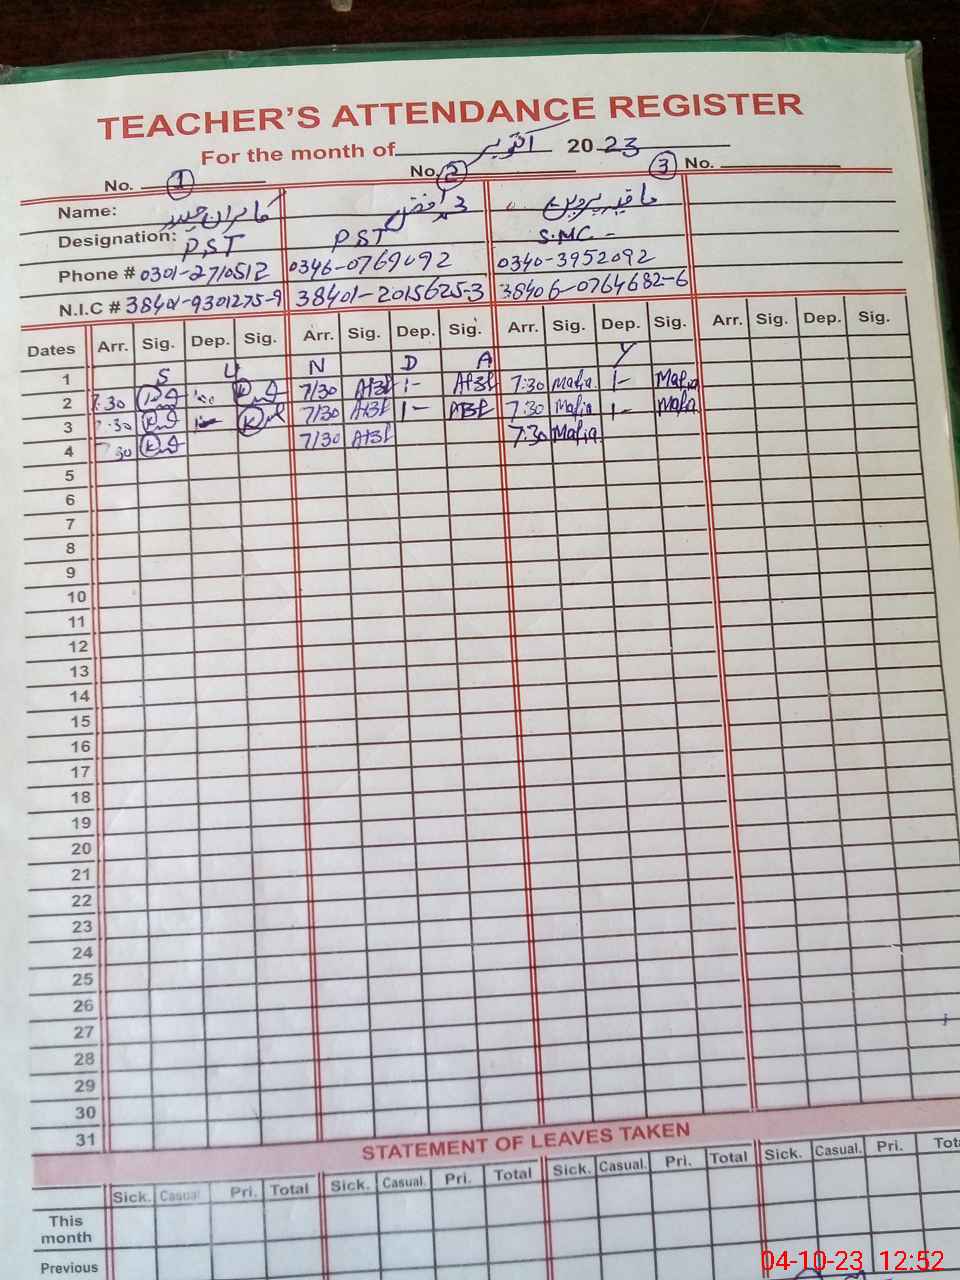 TEACHER'S ATTENDANCE REGISTER
For the month of اکتوبر 2023
No. 1 No. 2 3 No.
Name: کامران حیدر
Designation: PST PST S.M.C -
Phone # 0301-2710512 0346-0769092 0340-3952092
N.I.C # 38401-9301275-9 38401-2015625-3 38406-0764682-6
Dates Arr. Sig. Dep. Sig. Arr. Sig. Dep. Sig. Arr. Sig. Dep. Sig. Arr. Sig. Dep. Sig.
1 S U N D A Y
2 7:30 7/30 1- 7:30 Mafia 1- Mafia
3 7:30 7/30 1- 7:30 Mafia 1- Mafia
4 7:30 7/30 7:30 Mafia
5
6
7
8
9
10
11
12
13
14
15
16
17
18
19
20
21
22
23
24
25
26
27
28
29
30
31
STATEMENT OF LEAVES TAKEN
Sick. Casual. Pri. Total Sick. Casual. Pri. Total Sick. Casual. Pri. Total Sick. Casual. Pri. Tot
This month
Previous
04-10-23 12:52